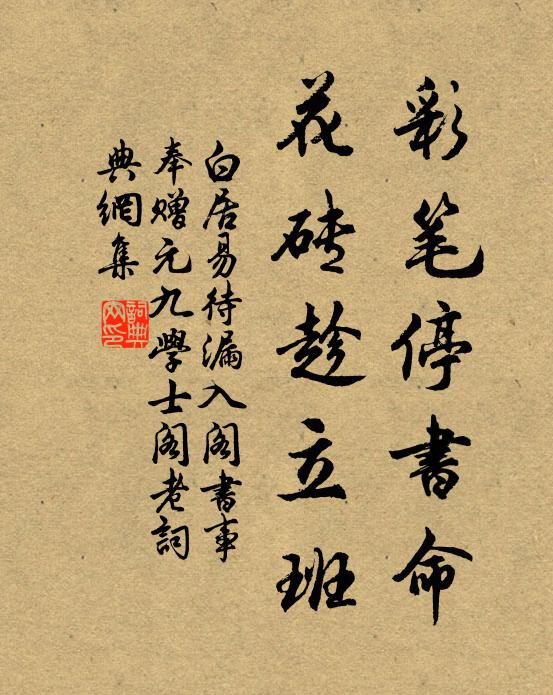 彩笔停書命
花砖趁立班
白居易待漏入阁書事
奉赠元九學士阁老詞
典網集
詞典网印